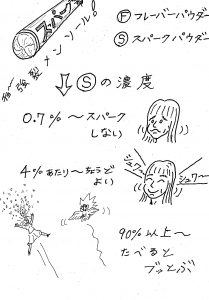 スパーク
強裂メンソール!
Ⓕ フレーバーパウダー
Ⓢ スパークパウダー
⇩ Ⓢの濃度
0.7%～スパーク
しない
4%あたり～ちょうど
よい
シュワー
シュワー
90%以上～
たべると
ブッとぶ